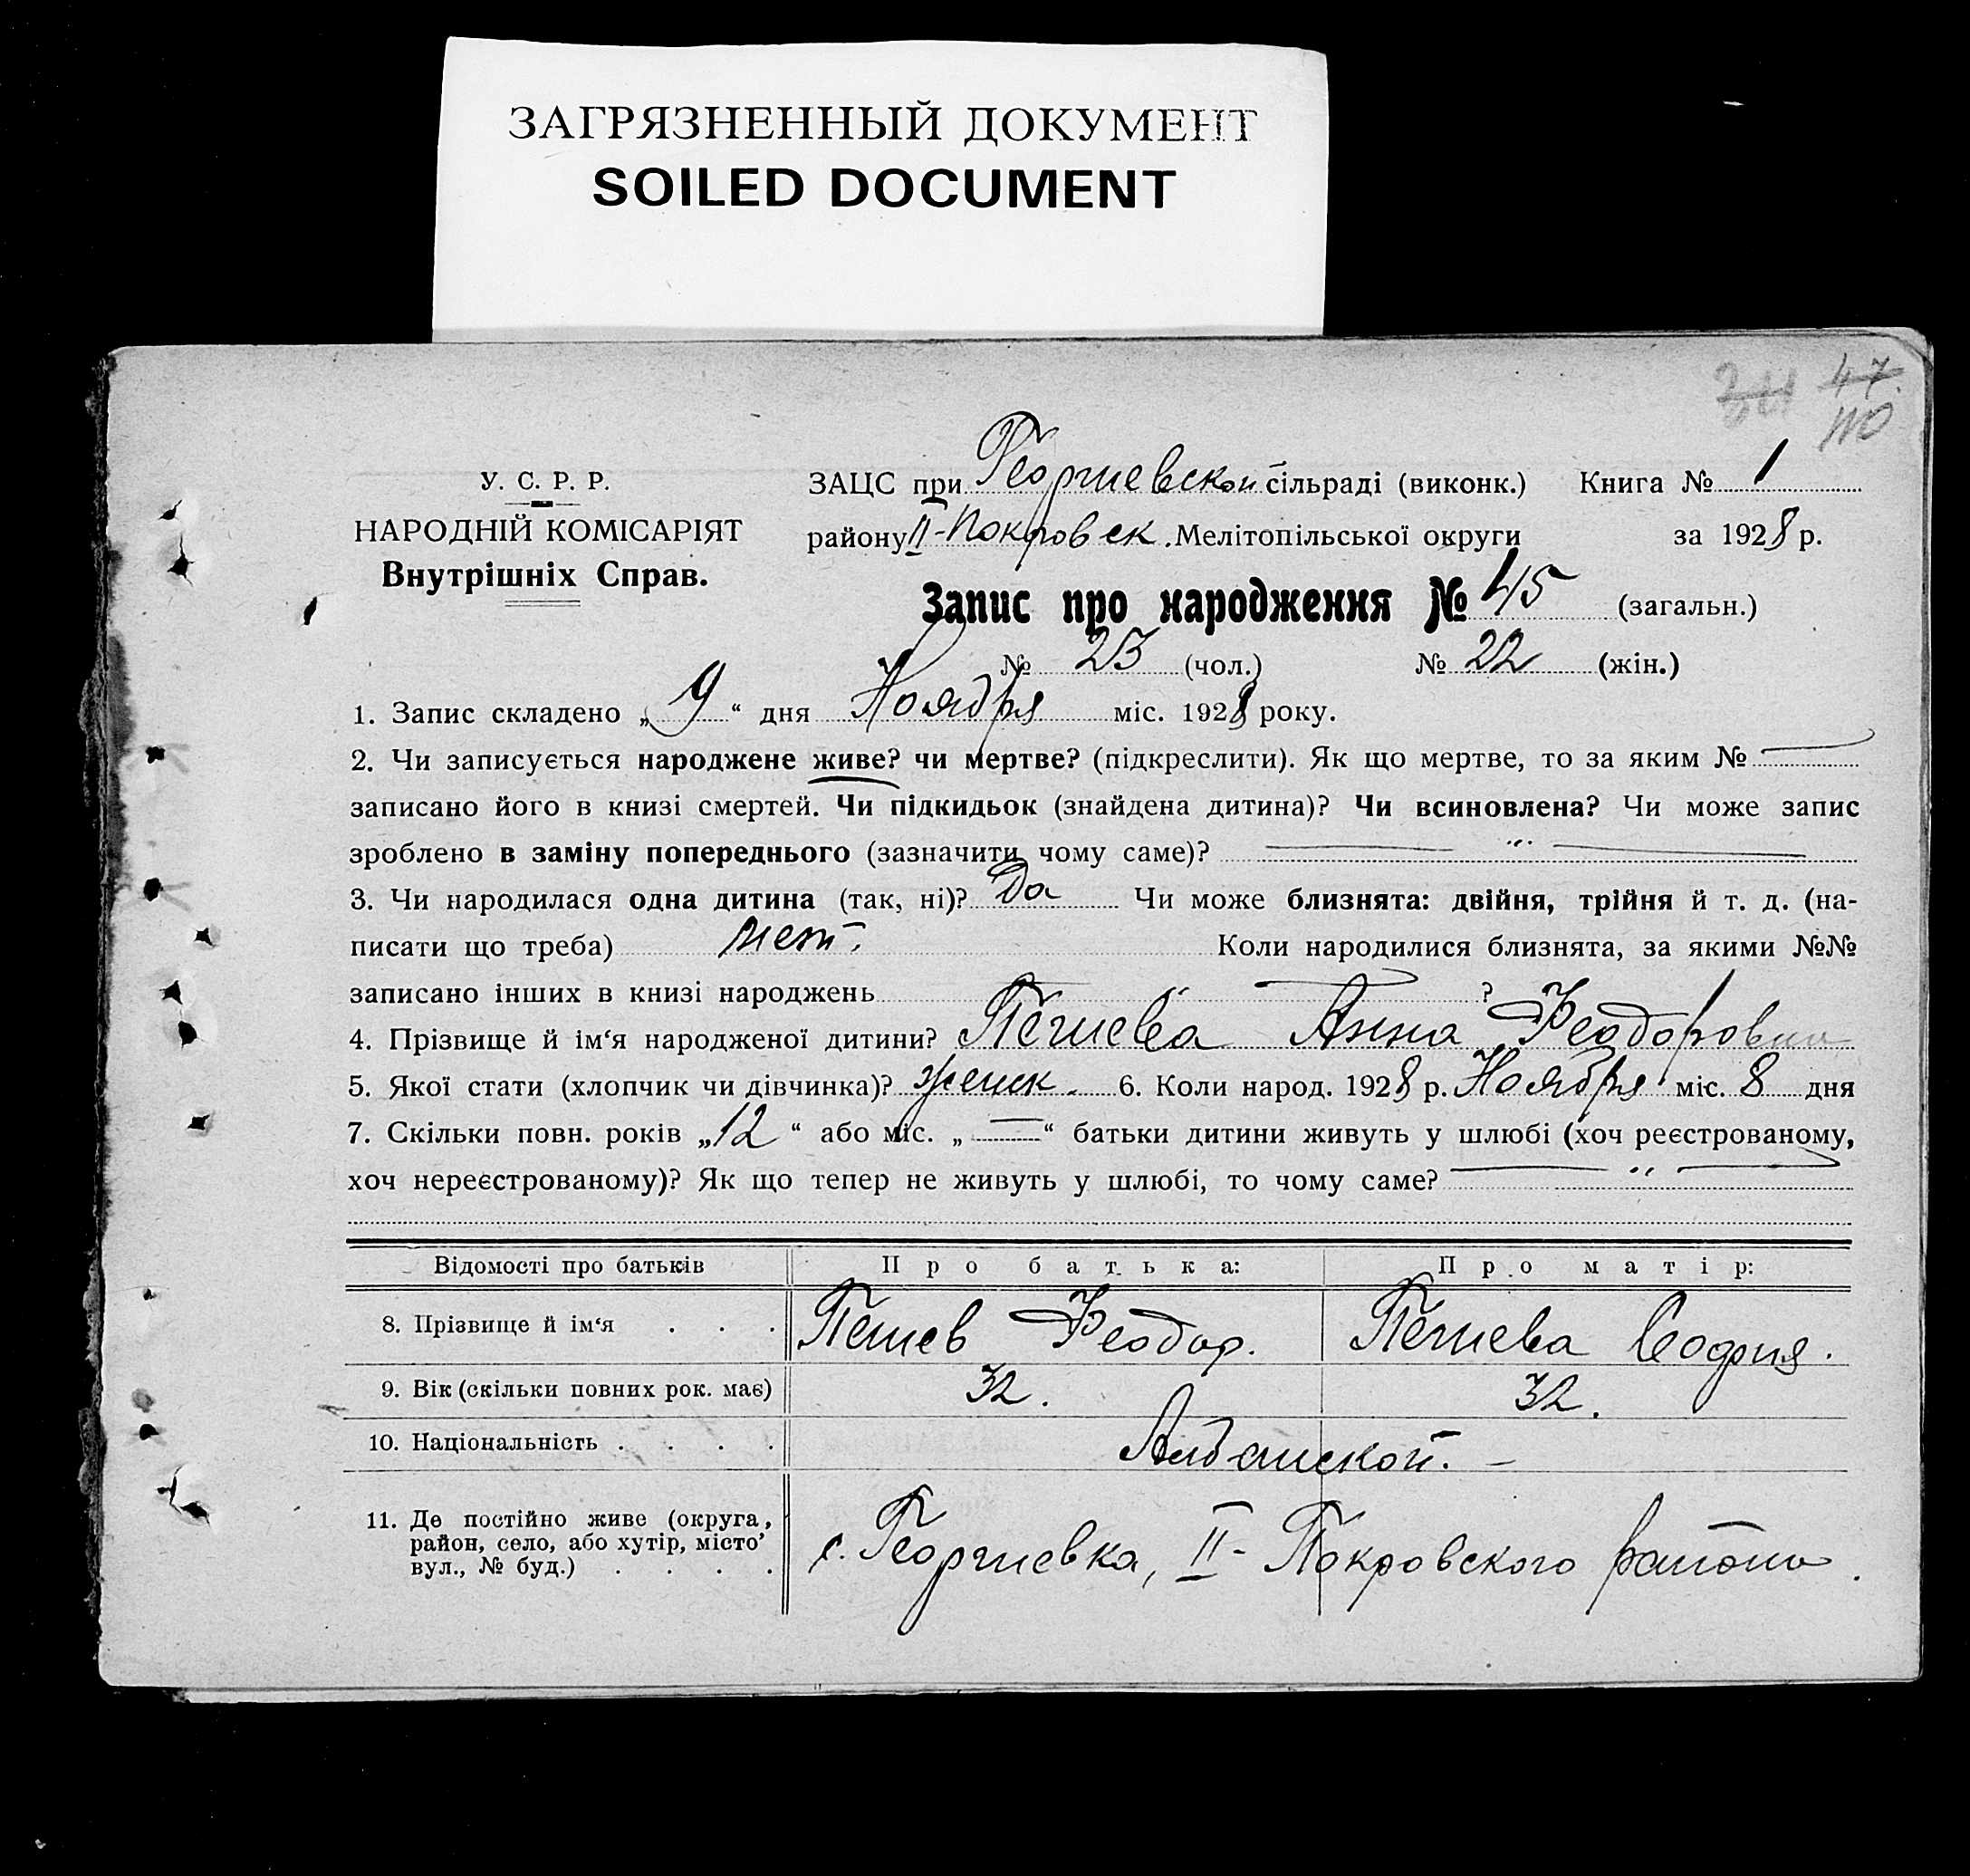 ЗАГРЯЗНЕННЫЙ ДОКУМЕНТ
SOILED DOCUMENT
47.
110
У. С. Р. Р.
НАРОДНІЙ КОМІСАРІЯТ
Внутрішніх Справ.
ЗАЦС при Георгиевской сільраді (виконк.) Книга № 1
району II-Покровск. Мелітопільської округи за 1928 р.
Запис про народження № 45 (загальн.)
№ 23 (чол.) № 22 (жін.)
1. Запис складено „ 9 “ дня Ноября міс. 1928 року.
2. Чи записується народжене живе? чи мертве? (підкреслити). Як що мертве, то за яким № —
записано його в книзі смертей. Чи підкидьок (знайдена дитина)? Чи всиновлена? Чи може запис
зроблено в заміну попереднього (зазначити чому саме)? — “ —
3. Чи народилася одна дитина (так, ні)? Да Чи може близнята: двійня, трійня й т. д. (на-
писати що треба) нет. Коли народилися близнята, за якими №№
записано інших в книзі народжень — “ — ?
4. Прізвище й ім‘я народженої дитини? Анна Феодоровна
5. Якої стати (хлопчик чи дівчинка)? женск. 6. Коли народ. 1928 р. Ноября міс. 8 дня
7. Скільки повн. років „ 12 “ або міс. „ — “ батьки дитини живуть у шлюбі (хоч реєстрованому,
хоч нереєстрованому)? Як що тепер не живуть у шлюбі, то чому саме? — “ —
Відомості про батьків Про батька: Про матір:
8. Прізвище й ім‘я . . . Феодор. София.
9. Вік (скільки повних рок. має) 32. 32.
10. Національність . . . . Албанской. –
11. Де постійно живе (округа,
район, село, або хутір, місто’
вул., № буд.) . . . . с. Георгиевка, II- Покровского района.